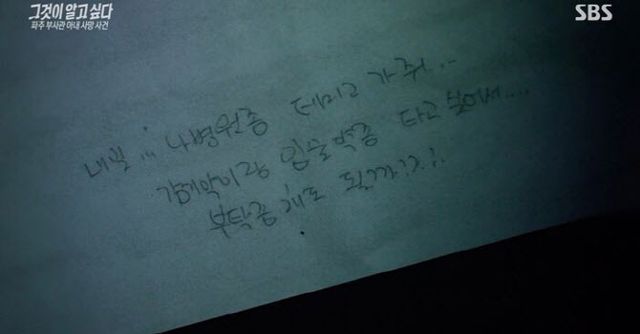 그것이 알고 싶다
파주 부사관 아내 사망 사건
SBS
내일... 나 병원좀 데리고 가줘..
감기약이랑 입술약좀 타고 싶어서....
부탁좀 해도 될까?..